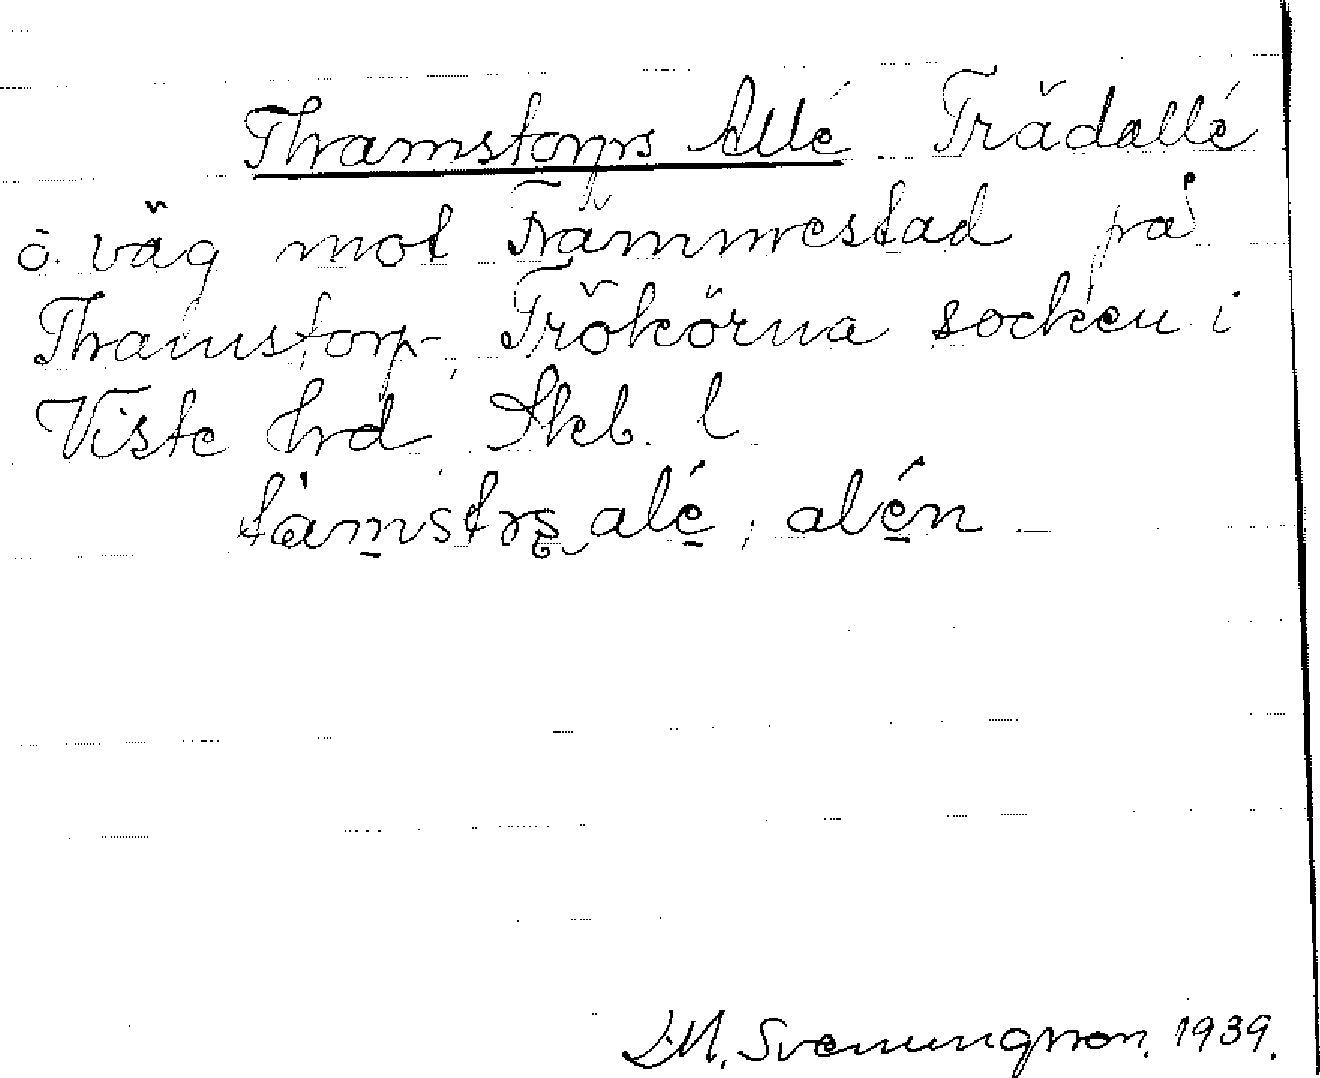 Thamstorps Allé Trädallé
ö. väg mot Främmestad på
Thamstorp, Frökörna socken i
Viste hrd Skb. l
tamstrs alé, alén
J.M. Svenungsson. 1939.